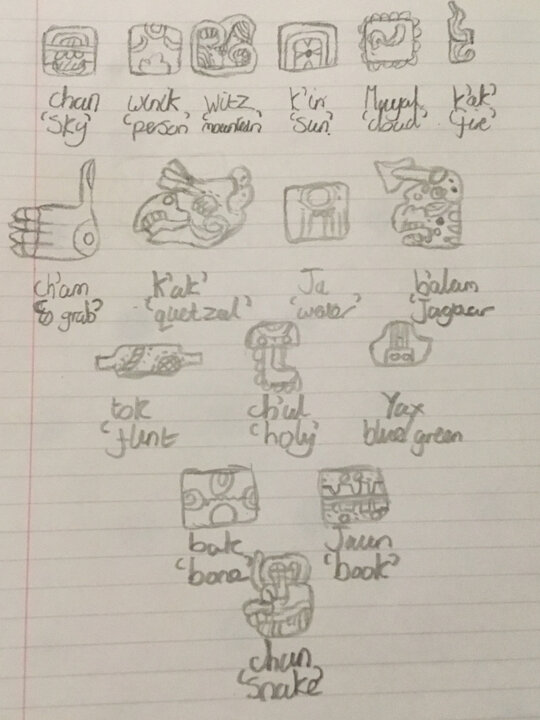 chan winik witz k'in Muyal k'ak'
'Sky' 'person' 'mountain' 'Sun' 'cloud' 'fire'
ch'am K'uk' Ja b'alam
'to grab' 'quetzal' 'water' 'Jaguar
tok ch'ul Yax
'flint 'holy' blue/green
bak Juun
'bone' 'book'
chan
'Snake